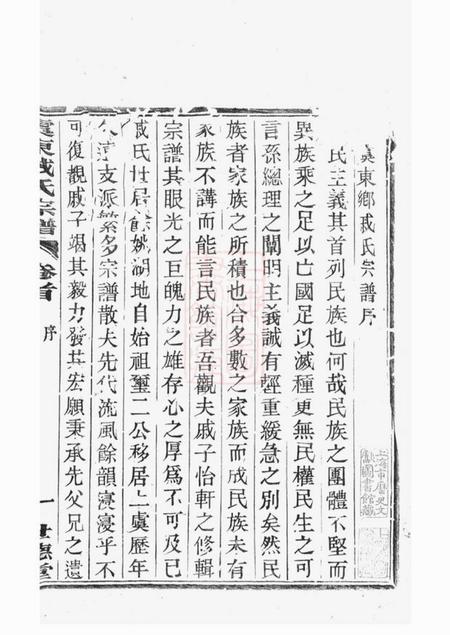 虞東鄉戚氏宗譜序
民主義其首列民族也何哉民族之團體不堅而
異族乘之足以亡國足以滅種更無民權民生之可
言孫總理之闡明主義誠有輕重緩急之別矣然民
族者家族之所積也合多數之家族而成民族未有
家族不講而能言民族者吾觀夫戚子怡軒之修輯
宗譜其眼光之巨魄力之雄存心之厚為不可及已
戚氏世居餘姚湖地自始祖璽二公移居上虞歷年
久遠支派繁多宗譜散失先代流風餘韻寖寖乎不
可復覩戚子竭其毅力發其宏願秉承先父兄之遺
虞東戚氏宗譜
卷首
序
一
世德堂
上海市歷史文
獻圖書館藏